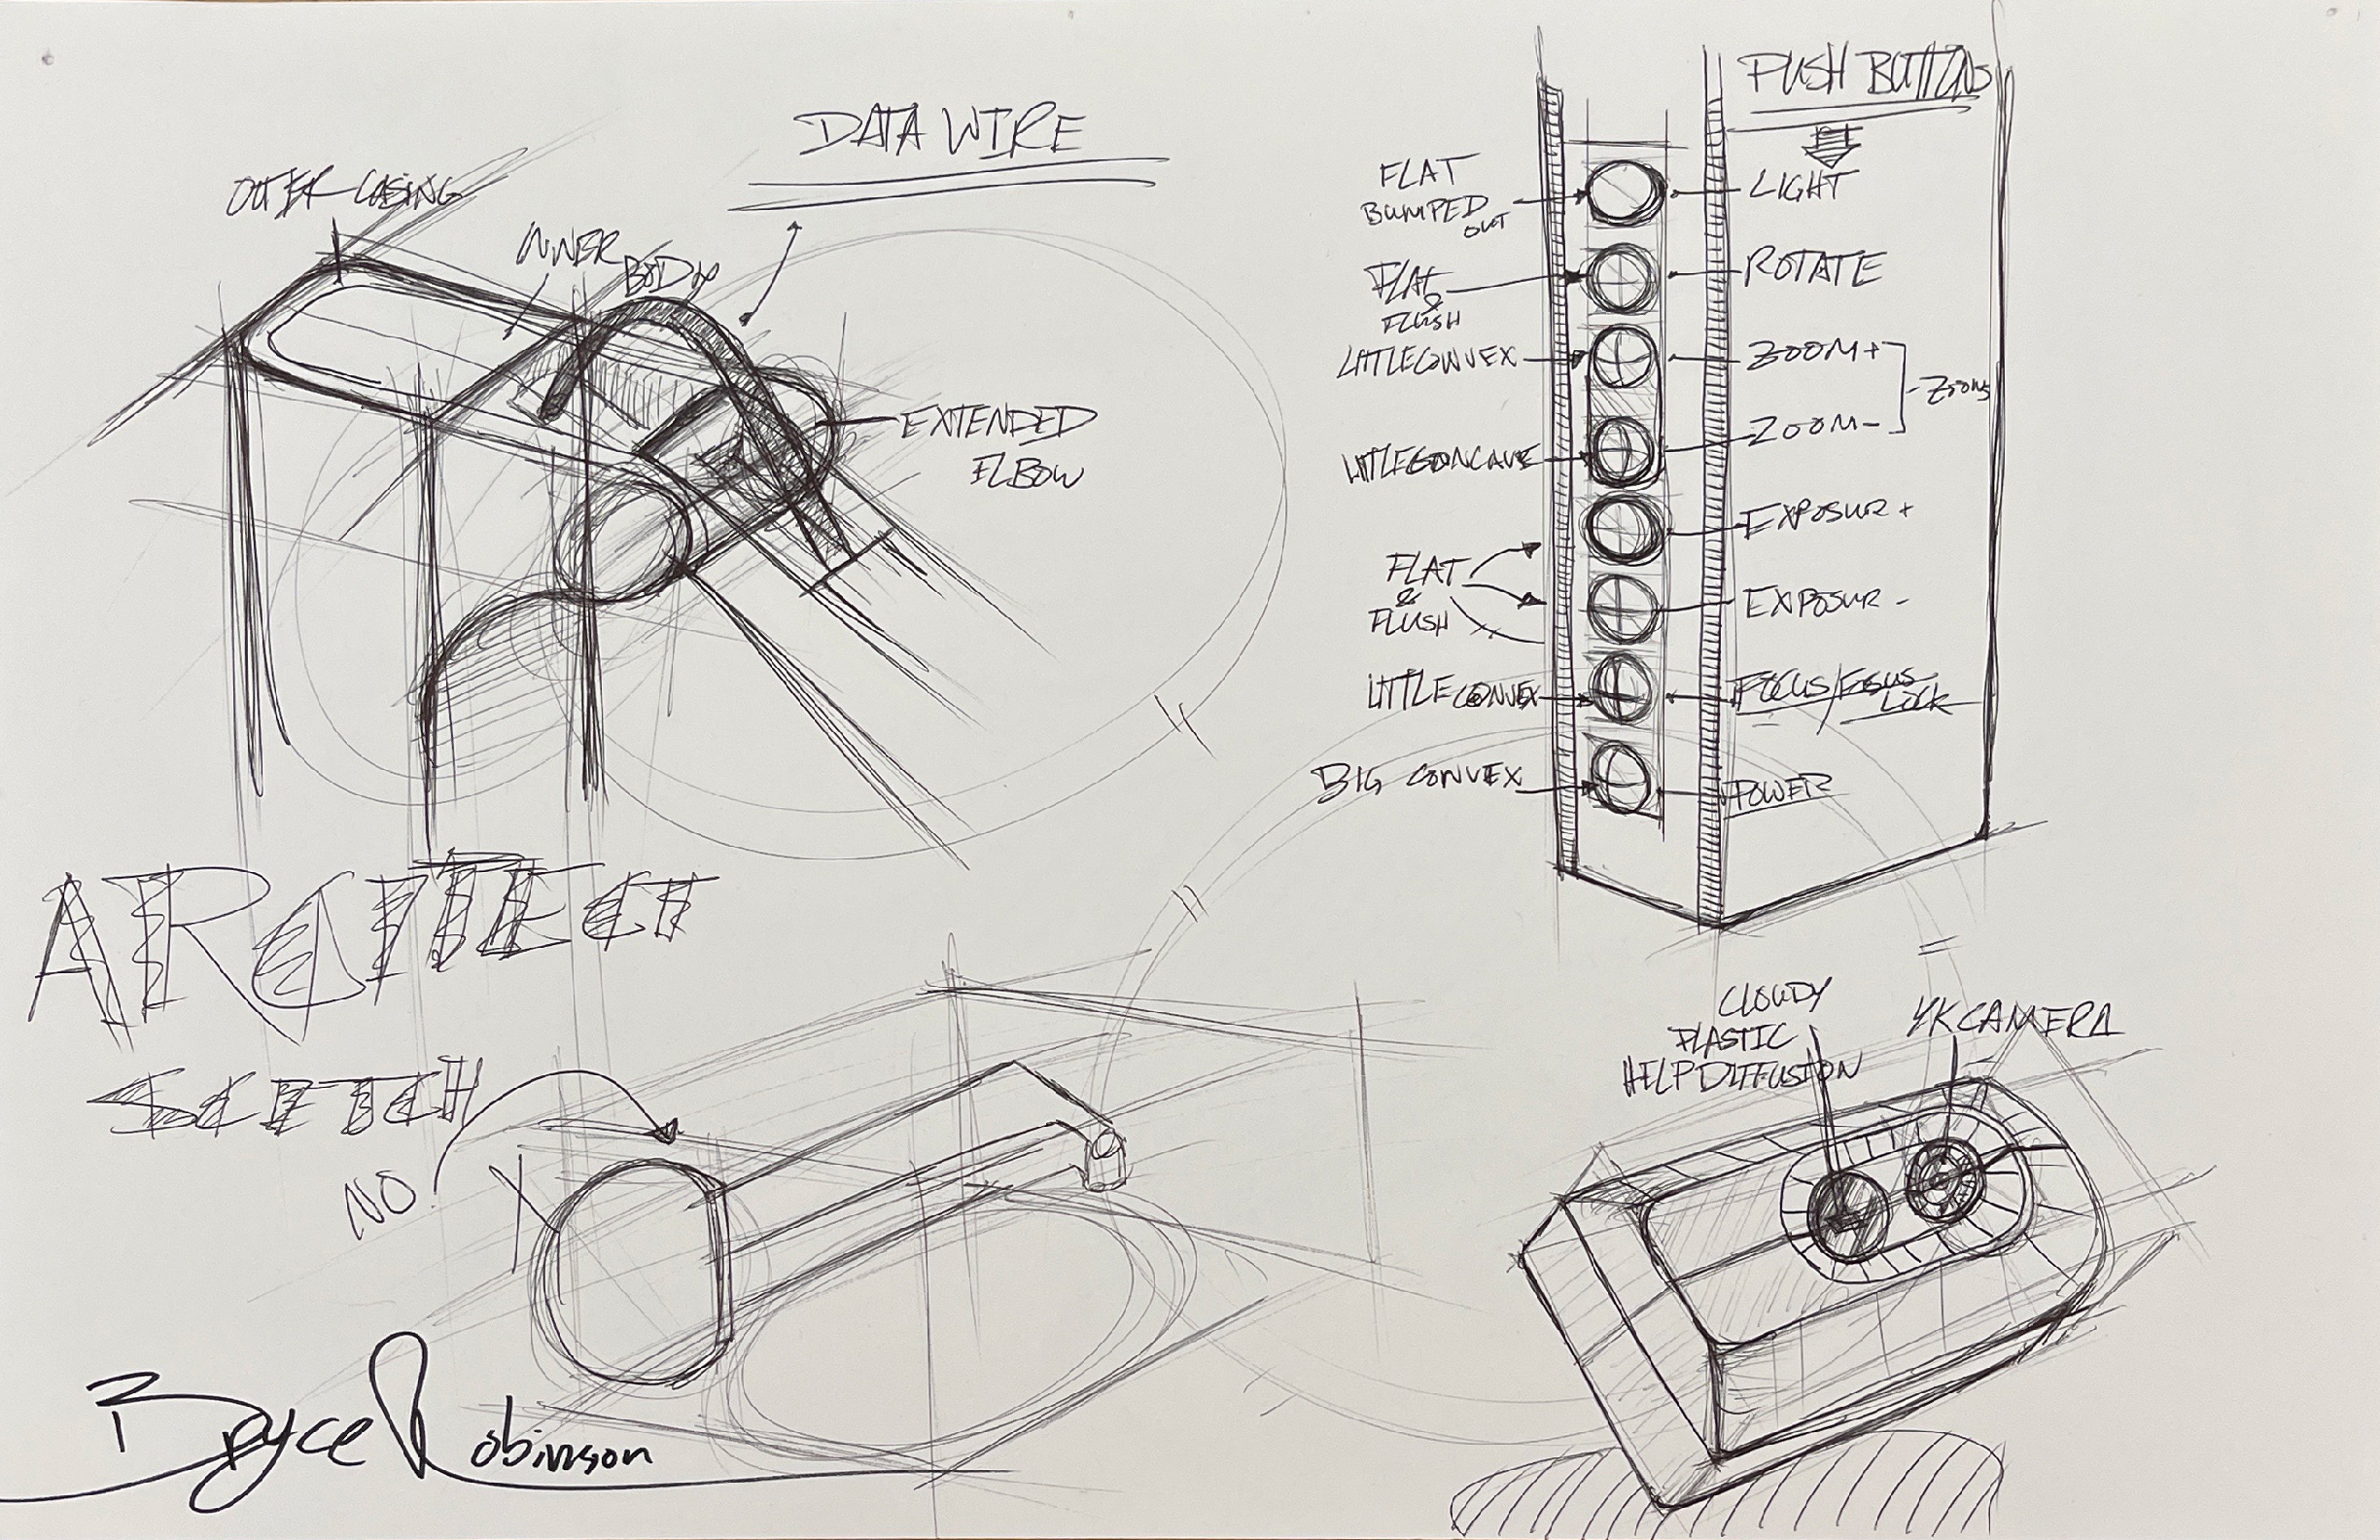 DATA WIRE
OUTER CASING
INNER BODY
EXTENDED
ELBOW
PUSH BUTTONS
FLAT
BUMPED
OUT
LIGHT
FLAT
&
FLUSH
ROTATE
LITTLE CONVEX
ZOOM+
ZOOM
LITTLE CONCAVE
ZOOM-
EXPOSUR +
FLAT
&
FLUSH
EXPOSUR -
LITTLE CONVEX
FOCUS/FOSUS
LOCK
BIG CONVEX
POWER
ARCITECT
SCETCH
NO
CLOUDY
PLASTIC
HELP DIFFUSION
4K CAMERA
Bryce Robinson